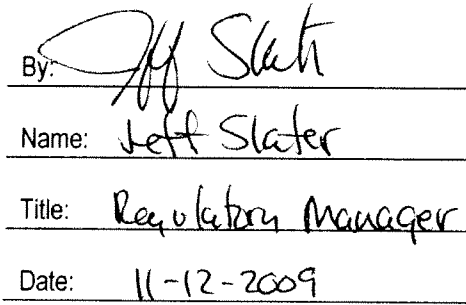 By: Jeff Slater
Name: Jeff Slater
Title: Regulatory Manager
Date: 11-12-2009